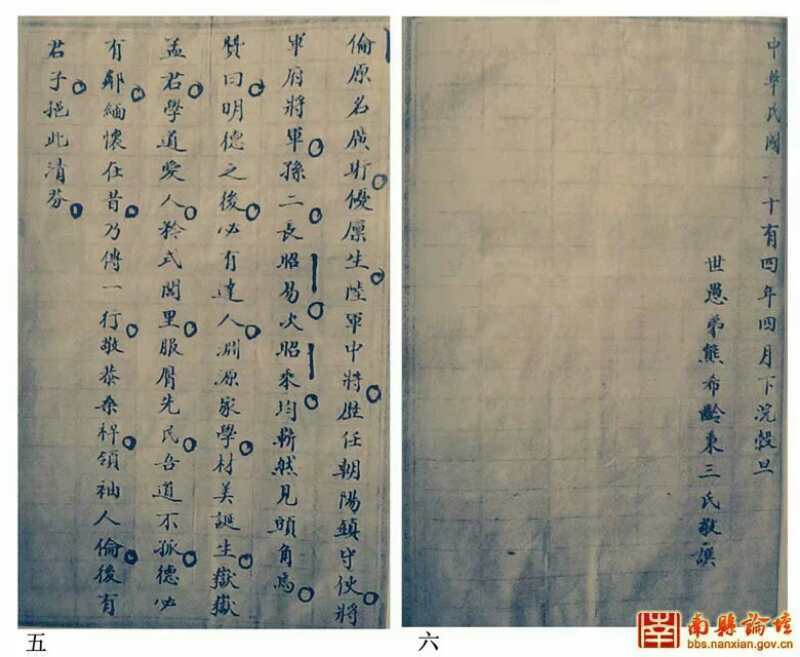 倫原名廣優廩生陸軍中將歷任朝陽鎮守使將
軍府將軍孫二長昭易次昭來均嶄然見頭角焉
贊曰明德之後必有達人淵源家學材美誕生嶽嶽
孟君學道愛人矜式閭里服膺先民吾道不孤德必
有鄰緬懷在昔乃傳一行敬恭桑梓領袖人倫後有
君子挹此清芬
五
中華民國十有四年四月下浣穀旦
世愚弟熊希齡秉三氏敬譔
六
南縣論壇
bbs.nanxian.gov.cn